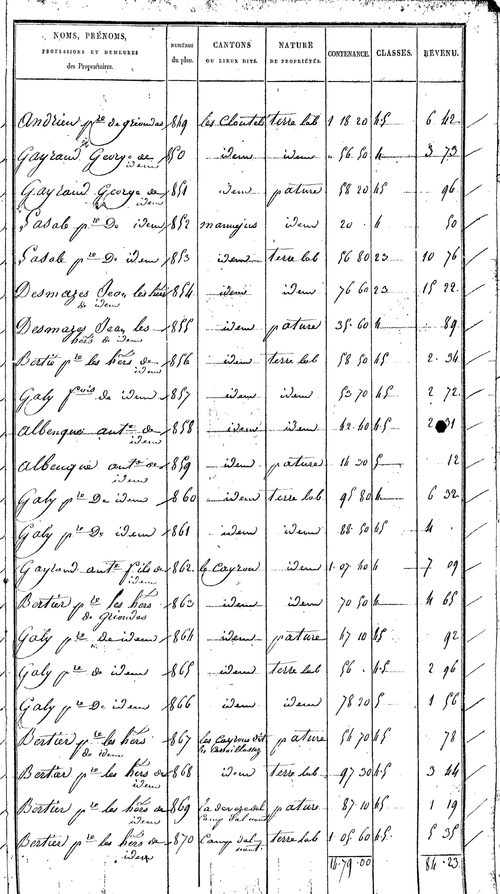 NOMS, PRÉNOMS, PROFESSIONS ET DEMEURES des Propriétaires. NUMÉROS du plan. CANTONS OU LIEUX DITS. NATURE DE PROPRIÉTÉS. CONTENANCE. CLASSES. REVENU.
Andrieu pre de griondas 849 les Cloutels terre lab 1 18 20 45 6 42
Gayraud George de idem 850 idem idem " 56 50 4 3 73
Gayraud George de idem 851 idem pature 58 20 45 96
Lasale pre De idem 852 idem 20 . 6 50
Lasale pre De idem 853 idem terre lab 56 80 23 10 76
Desmazes Jean les hers de idem 854 idem idem 76 60 23 15 22
Desmazes Jean les hers de idem 855 idem pature 35 60 4 89
Bertié pre les hers de idem 856 idem terre lab 58 50 45 2 34
Galy fois de idem 857 idem idem 53 70 45 2 72
Albenque ante de idem 858 idem idem 42 40 45 2 31
Albenque ante de idem 859 idem pature 14 30 5 12
Galy pre De idem 860 idem terre lab 95 80 4 6 32
Galy pre De idem 861 idem idem 88 50 45 4 .
Gayraud ante fils de idem 862 le Cayrou idem 1 07 40 4 7 09
Bertier pre les hers de griondas 863 idem idem 70 50 4 4 65
Galy pre de idem 864 idem pature 47 10 45 92
Galy pre de idem 865 idem terre lab 56 . 45 2 96
Galy pre De idem 866 idem idem 78 20 5 1 56
Bertier pre les hers de idem 867 les Cayrous dit pature 54 70 45 78
Bertier pre les hers de idem 868 idem terre lab 97 30 45 3 44
Bertier pre les hers de idem 869 pature 87 10 45 1 19
Bertier pre les hers de idem 870 Camp dal terre lab 1 05 60 45 5 35
14 79 00 84 23